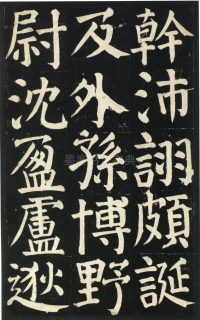 幹沛詡頗誕
及外孫博野
尉沈盈盧逖